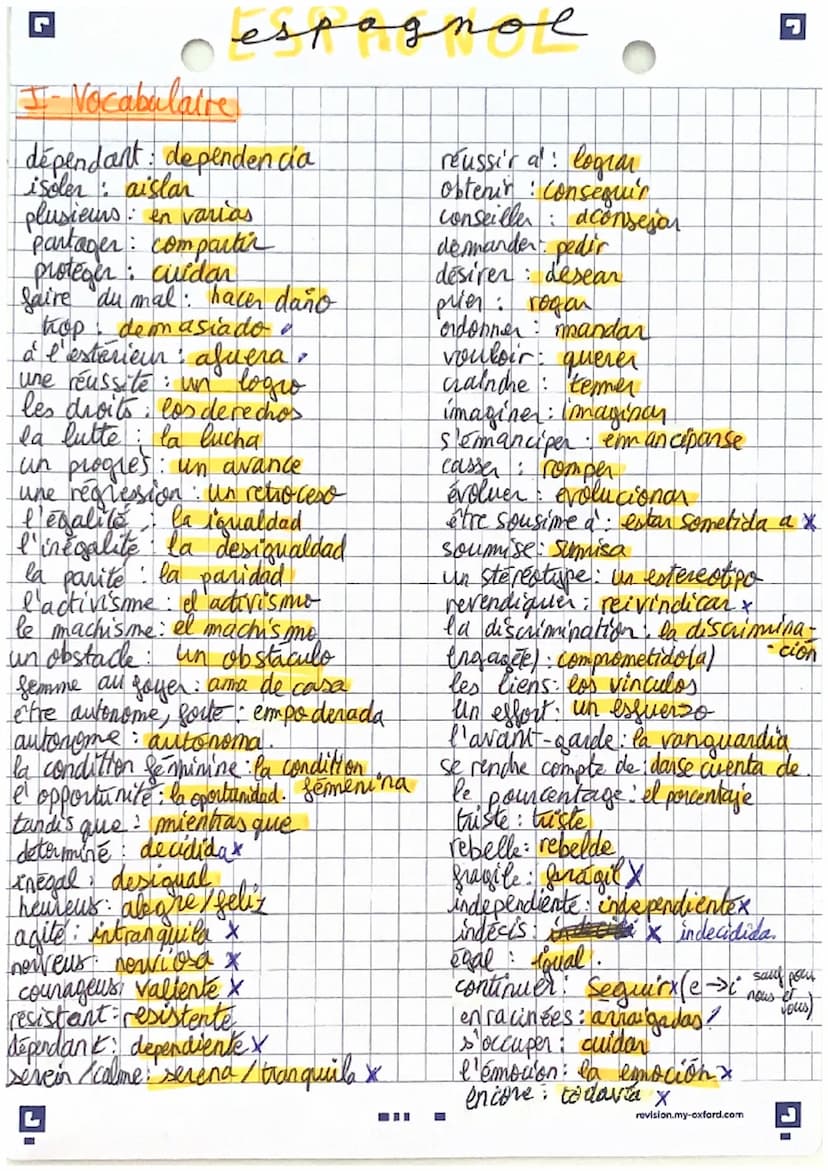 ESPAGNOL
espagnol
I- Vocabulaire
dépendant : dependencia
isoler : aislar
plusieurs : en varias
partager : compartir
protéger : cuidar
faire du mal : hacer daño
trop : demasiado
à l'estérieur : afuera
une réussite : un logro
les droits : los derechos
la lutte : la lucha
un progrès : un avance
une régression : un retroceso
l'égalité : la igualdad
l'inégalité : la desigualdad
la parité : la paridad
l'activisme : el activismo
le machisme : el machismo
un obstacle : un obstáculo
femme au foyer : ama de casa
être autonome, forte : empoderada
autonome : autónoma.
la condition féminine : la condition
femenina
l'opportunité : la oportunidad.
tandis que : mientras que
determiné : decidida x
inégal : desigual
heureux : alegre / feliz
agité : intranquila x
nerveux : nerviosa x
courageux : valiente x
résistant : resistente
dépendant : dependiente x
serein / calme : serena / tranquila x
réussir à : lograr
obtenir : conseguir
conseiller : aconsejar
demander : pedir
désirer : desear
prier : rogar
ordonner : mandar
vouloir : querer
craindre : temer
imaginer : imaginar
s'émanciper : emanciparse
casser : romper
évoluer : evolucionar
être sousime à : estar sometida a x
soumise : sumisa
un stéréotype : un estereotipo
revendiquer : reivindicar x
la discrimination : la discrimina-
ción
engagé(e) : comprometido(a)
les liens : los vínculos
un effort : un esfuerzo
l'avant-garde : la vanguardia
se rendre compte de : darse cuenta de
le pourcentage : el porcentaje
triste : triste
rebelle : rebelde
fragile : fragil x
independiente : independiente x
indécis : x indecidida.
égal : igual.
continuer : Seguir x (e → i sauf pour
nous et
vous)
enracinées : arraigadas !
s'occuper : cuidar
l'émocion : la emoción x
encore : todavía x
revision.my-oxford.com